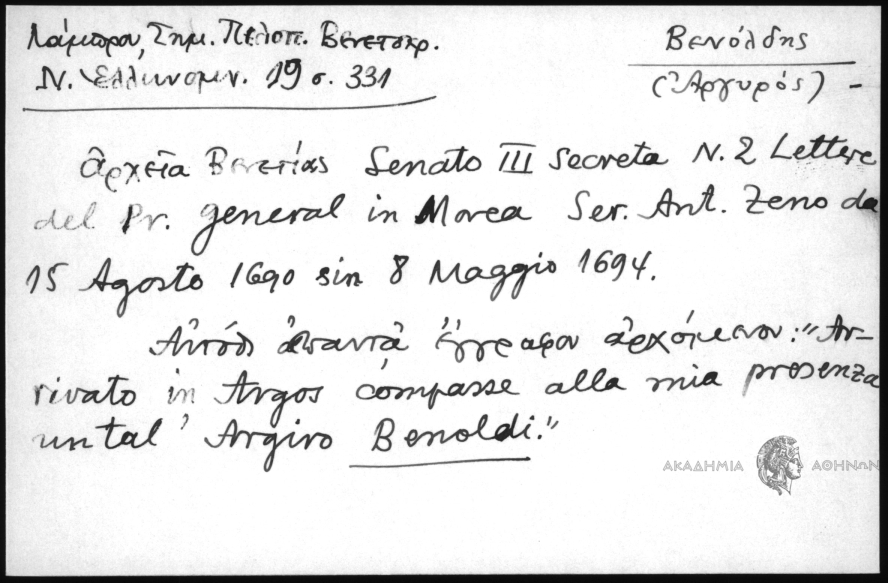 Λάμπρου, Σημ. Πελοπ. Βενετοκρ.
Ν. Ἑλληνομν. 19 σ. 331
Βενόλδης
(Ἀργυρός) -
ἀρχεῖα Βενετίας Senato III Secreta N. 2 Lettere
del Pr. general in Morea Ser. Ant. Zeno da
15 Agosto 1690 sin 8 Maggio 1694.
Αὐτόθι ἀπαντᾶ ἔγγραφον ἀρχόμενον: "Ar-
rivato in Argos compasse alla mia presenza
un tal' Argiro Benoldi."
ΑΚΑΔΗΜΙΑ ΑΘΗΝΩΝ